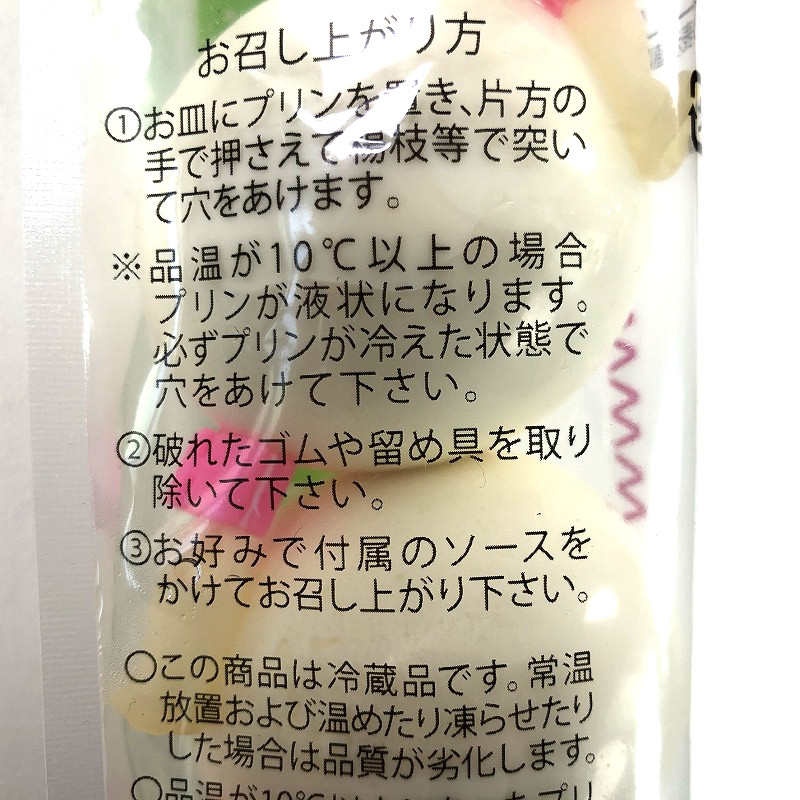 お召し上がり方
①お皿にプリンを置き、片方の
手で押さえて楊枝等で突い
て穴をあけます。
※品温が10℃以上の場合
プリンが液状になります。
必ずプリンが冷えた状態で
穴をあけて下さい。
②破れたゴムや留め具を取り
除いて下さい。
③お好みで付属のソースを
かけてお召し上がり下さい。
○この商品は冷蔵品です。常温
放置および温めたり凍らせたり
した場合は品質が劣化します。
○品温が10℃以上